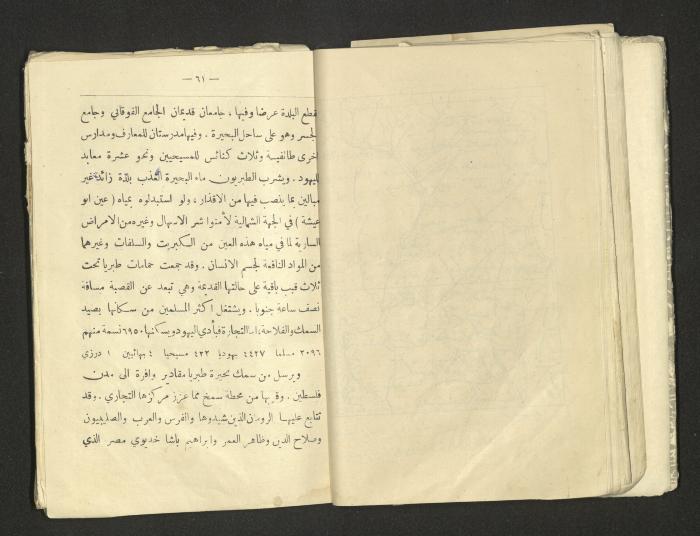 — ٦١ —
يقطع البلدة عرضا وفيها ، جامعان قديمان الجامع الفوقاني وجامع
الجسر وهو على ساحل البحيرة . وفيها مدرستان للمعارف ومدارس
اخرى طائفية وثلاث كنائس للمسيحيين ونحو عشرة معابد
لليهود . ويشرب الطبريون ماء البحيرة العذب بلذة زائدة غير
مبالين بما ينصب فيها من الاقذار ، ولو استبدلوه بمياه ( عين ابو
عيشة ) في الجهة الشمالية لأمنوا شر الاسهال وغيره من الامراض
السارية لما في مياه هذه العين من الكبريت والسلفات وغيرهما
من المواد النافعة لجسم الانسان . وقد جمعت حمامات طبريا تحت
ثلاث قبب باقية على حالتها القديمة وهي تبعد عن القصبة مسافة
نصف ساعة جنوبا . ويشتغل اكثر المسلمين من سكانها بصيد
السمك والفلاحة ، اما التجارة فبأدي اليهود ويسكنها ٦٩٥٠ نسمة منهم
٢٠٩٦ مسلما ٤٤٢٧ يهوديا ٤٢٢ مسيحيا ٤ بهائيين ١ درزي
ويرسل من سمك بحيرة طبريا مقادير وافرة الى مدن
فلسطين . وقربها من محطة سمخ مما عزز مركزها التجاري . وقد
تتابع عليها الرومان الذين شيدوها والفرس والعرب والصليبيون
وصلاح الدين وظاهر العمر وابراهيم باشا خديوي مصر الذي